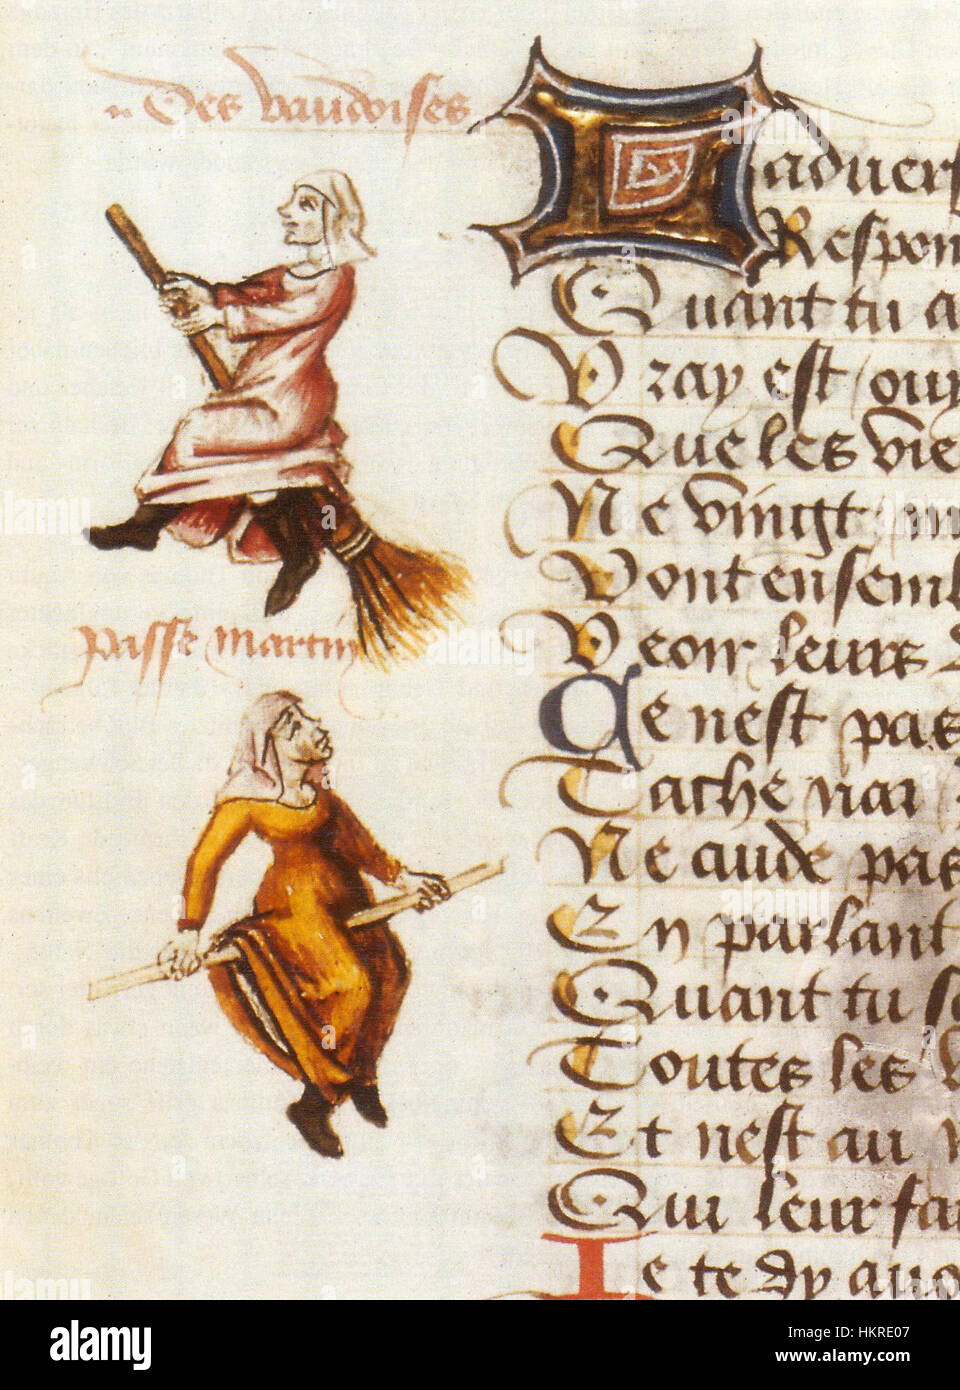 Des vaudoises
passe martin
L aduers
Respon
Quant tu a
Vray est ouy
Que les vie
Ne vingt
Vont ensembl
Veoir leurs
Ce nest pas
Tache nai
Ne aude pas
En parlant
Quant tu so
Toutes les
Et nest au
Qui leur fai
Je te dy auo
alamy
Image ID: HKRE07
www.alamy.com